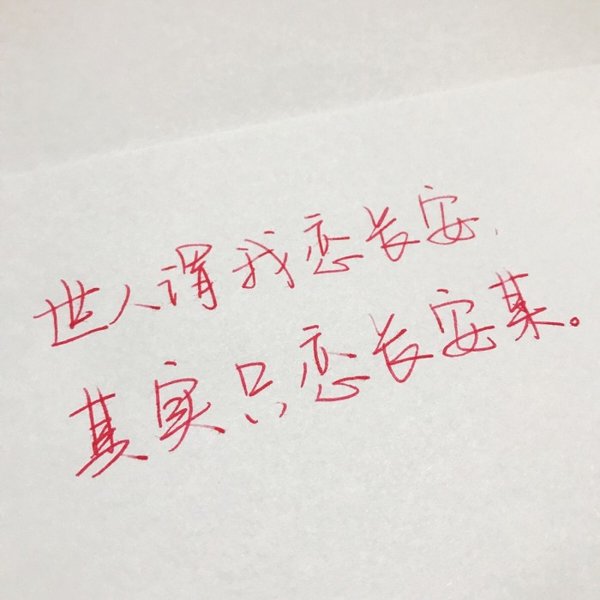 世人谓我恋长安,
其实只恋长安某。